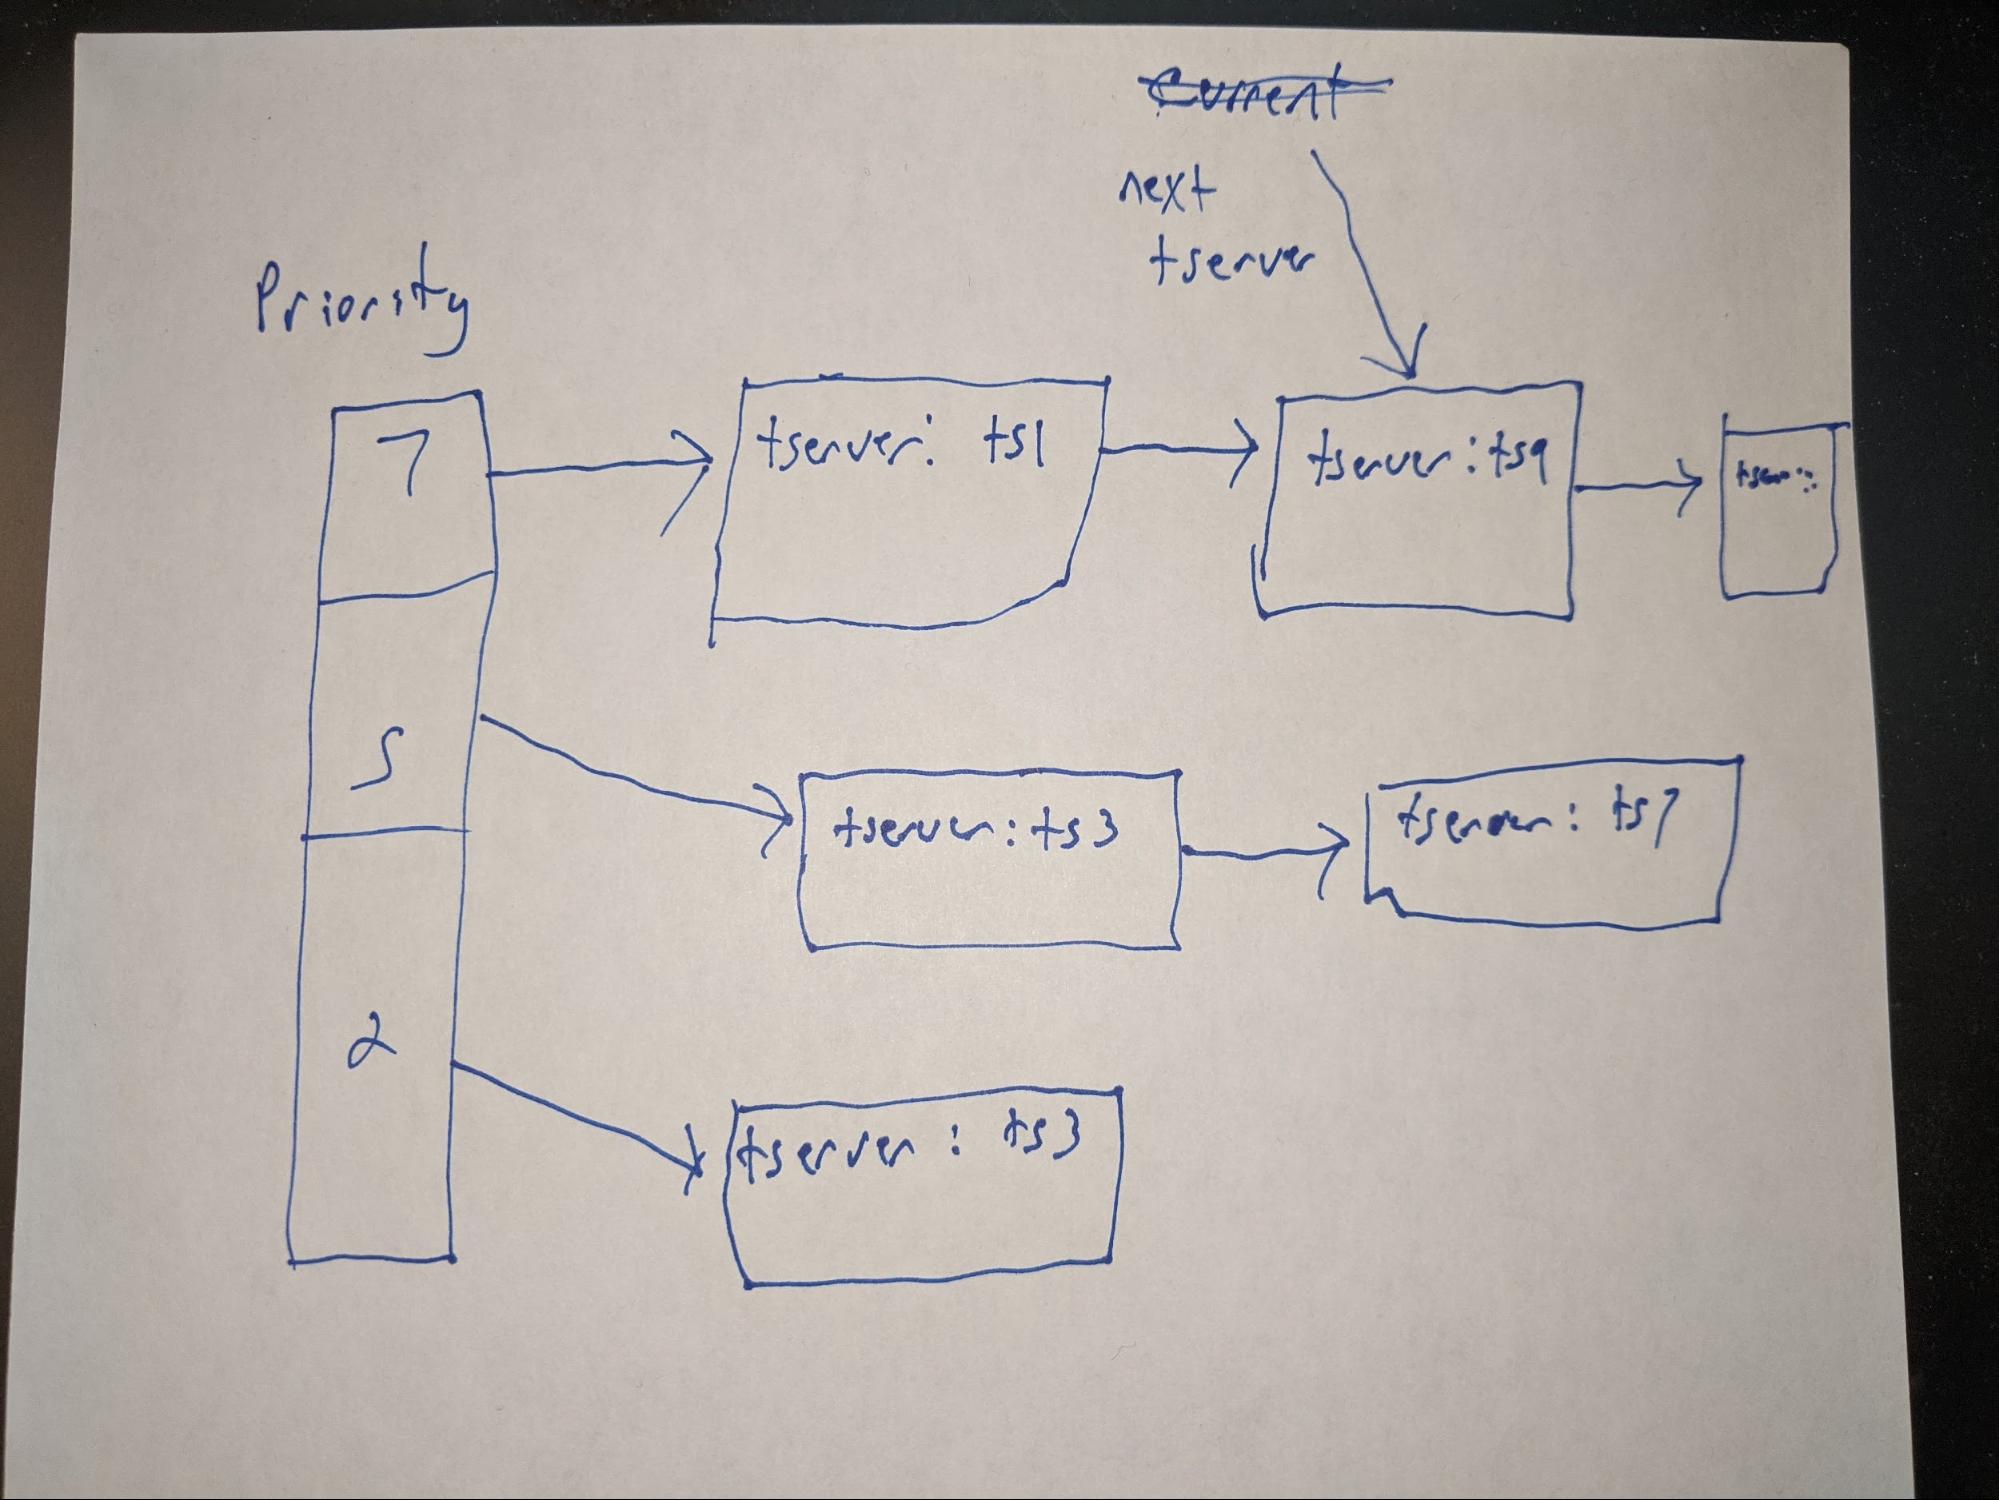 Current
next
tserver
Priority
7
tserver: ts1
tserver: ts9
5
tserver: ts3
tserver: ts7
2
tserver: ts3